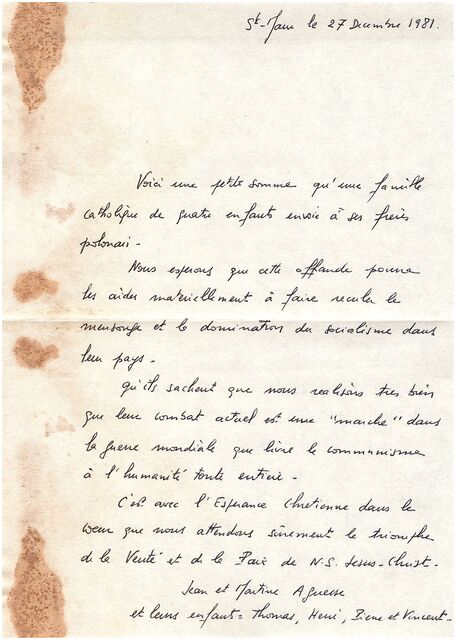 St-Maur le 27 Decembre 1981.
Voici une petite somme qu'une famille
catholique de quatre enfants envoie à ses frères
polonais -
Nous esperons que cette offrande pourra
les aider materiellement à faire reculer le
mensonge et la domination du socialisme dans
leur pays -
qu'ils sachent que nous realisons tres bien
que leur combat actuel est une "marche" dans
la guerre mondiale que livre le communisme
à l'humanité toute entiere -
C'est avec l'Esperance Chretienne dans le
coeur que nous attendons sûrement le triomphe
de la Verité et de la Paix de N.S. Jesus-Christ -
Jean et Martine
et leurs enfants = Thomas, Henri, et Vincent -